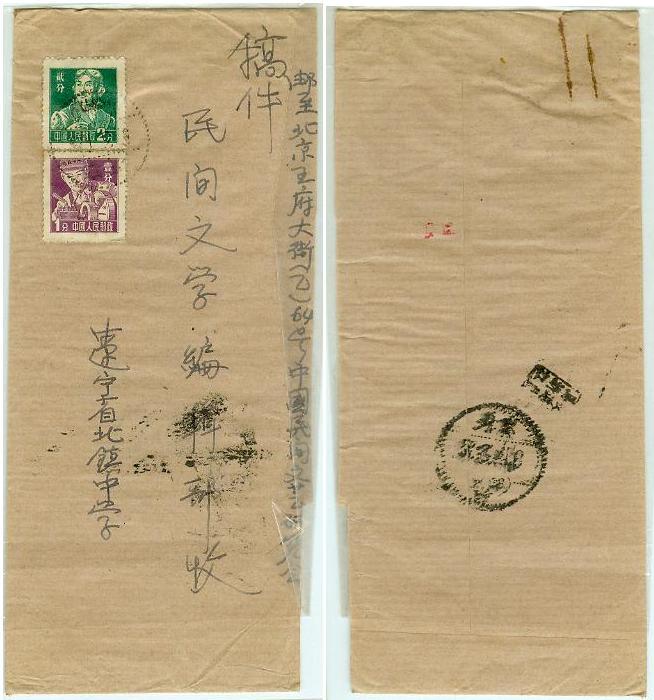 稿件
邮至北京王府大街(乙)64号中國民间
民间文学编辑部收
遼宁省北镇中学
贰分
中國人民邮政 2分
壹分
1分 中國人民邮政